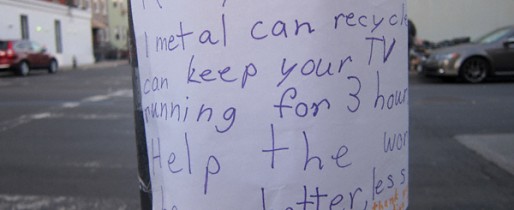 1 metal can recycle
can keep your TV
running for 3 hour
Help the wor
better, less